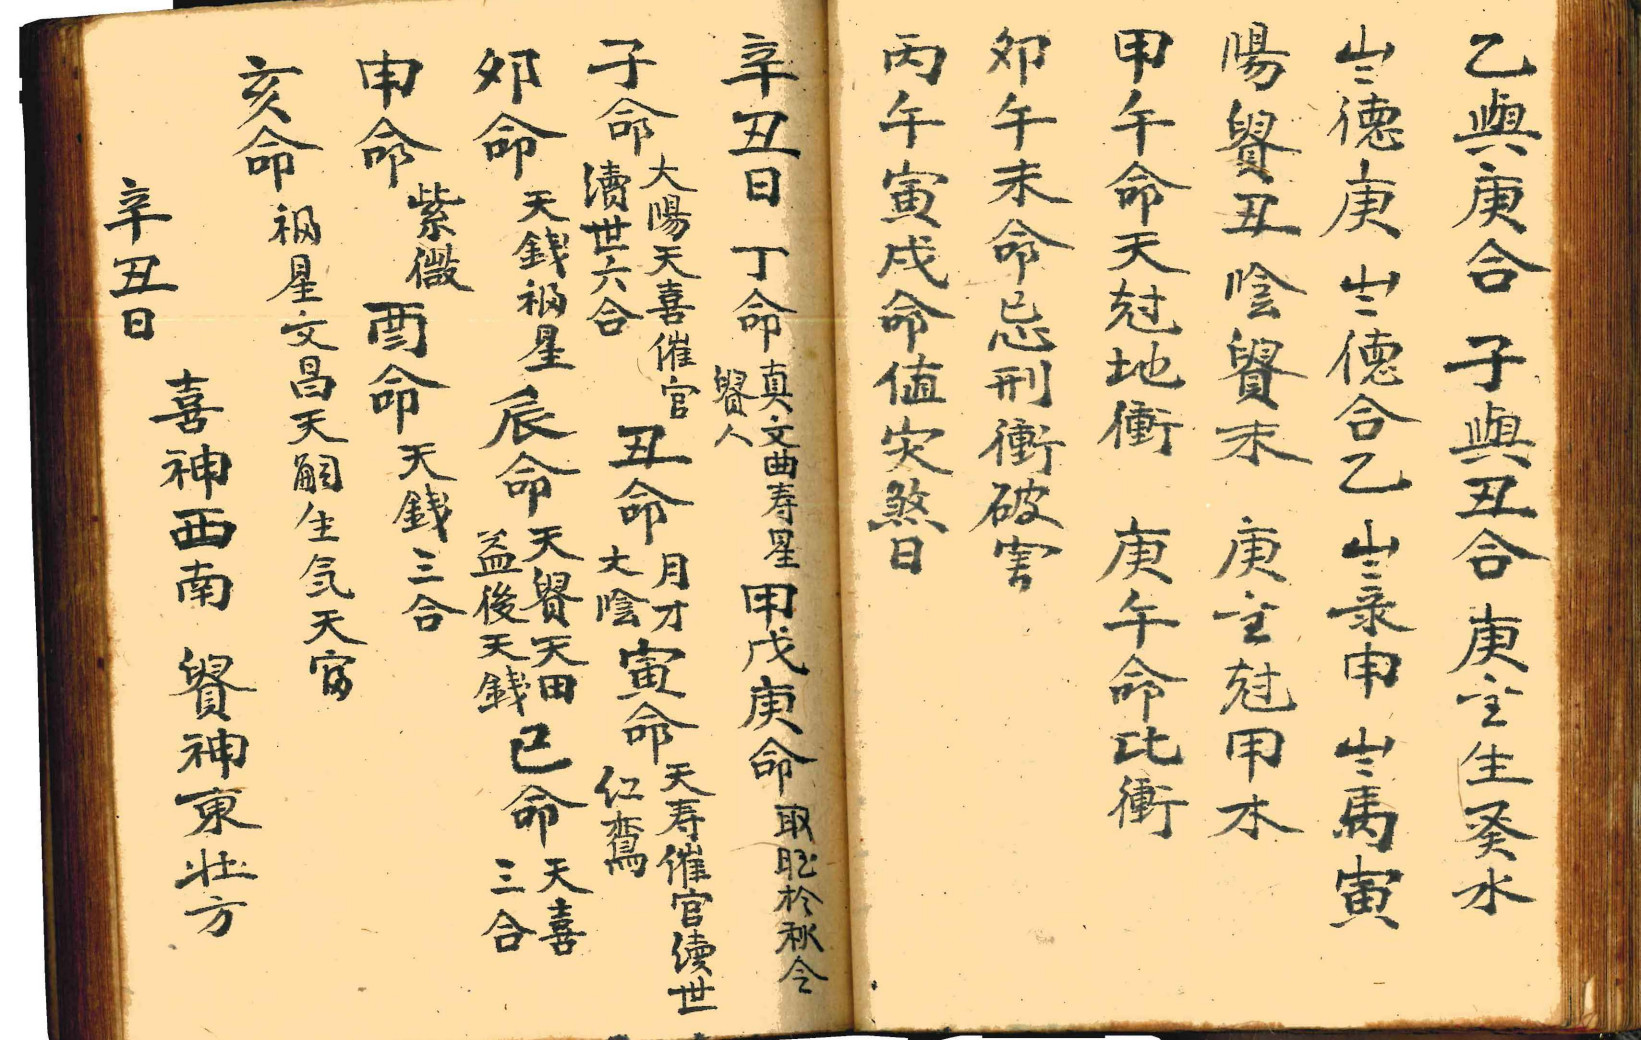 乙與庚合 子與丑合 庚主生癸水
岁德庚 岁德合乙 岁录申 岁馬寅
陽貴丑 陰貴未 庚主尅甲木
甲午命天尅地衝 庚午命比衝
卯午未命忌刑衝破害
丙午寅戌命值灾煞日
辛丑日 丁命 真文曲寿星
貴人
甲戊庚命 取旺於秋令
子命 大陽天喜催官
瀆世六合
丑命 月才
大陰
寅命 天寿催官瀆世
仁鸾
卯命 天錢祸星
辰命 天貴天田
益後天錢
巳命 天喜
三合
申命 紫微
酉命 天錢三合
亥命 祸星文昌天嗣生気天富
辛丑日
喜神西南 貴神東北方